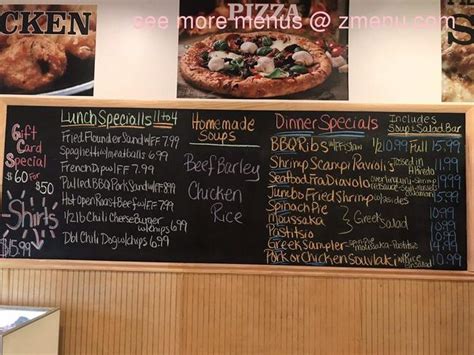 see more menus @ zmenu.com
CKEN
PIZZA
SPECIALS
Gift
Card
Special
$60 for
$50
T-Shirts
$15.99
Lunch Specialls 11 to 4
Fried Flounder Sand w/FF 7.99
Spaghetti w/meatballs 6.99
French Dip w/FF 7.99
Pulled BBQ Pork Sand w/FF 8.99
Hot open Roast Beef w/FF 7.99
1/2 lb Chili Cheese Burger
w/chips 6.99
Dbl Chili Dog w/chips 6.99
Homemade
Soups
Beef Barley
Chicken
Rice
Dinner Specials Includes
Soup & Salad Bar
BBQ Ribs w/FF & slaw 1/2 10.99 Full 15.99
Shrimp Scampi Ravioli's Tossed in
Alfredo
Seafood Fra Diavolo over linguini - shrimp
Jumbo Fried Shrimp w/a sides
Spinach Pie
Moussaka
Pastitsio
Greek Salad
Greek Sampler - spin pie
moussaka - Pastitsio 14.99
Pork or Chicken Souvlaki w/Rice 10.99